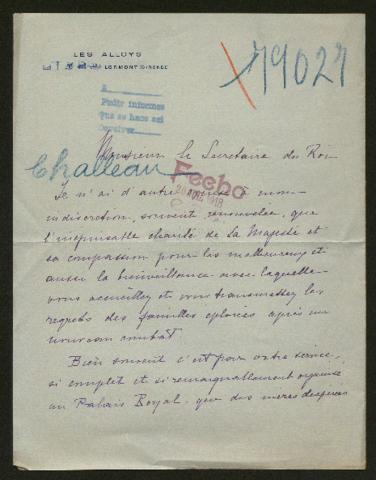 LES ALLOYS
LORMONT (GIRONDE)
79027
A
Pedir informes
Que se hace así
Challeau
Monsieur le Secretaire du Roi
Fecho
1918
Je n'ai d'autre excuse à mon
indiscretion, souvent renouvelée, que
l'inépuisable charité de Sa Majesté et
sa compassion pour les malheureux et
aussi la bienveillance avec laquelle
vous accueillez et vous transmettez les
regrets des familles eplorées après un
nouveau combat.
Bien souvent c'est par votre service,
si complet et si remarquablement organisé
au Palais Royal, que des mères desespérées